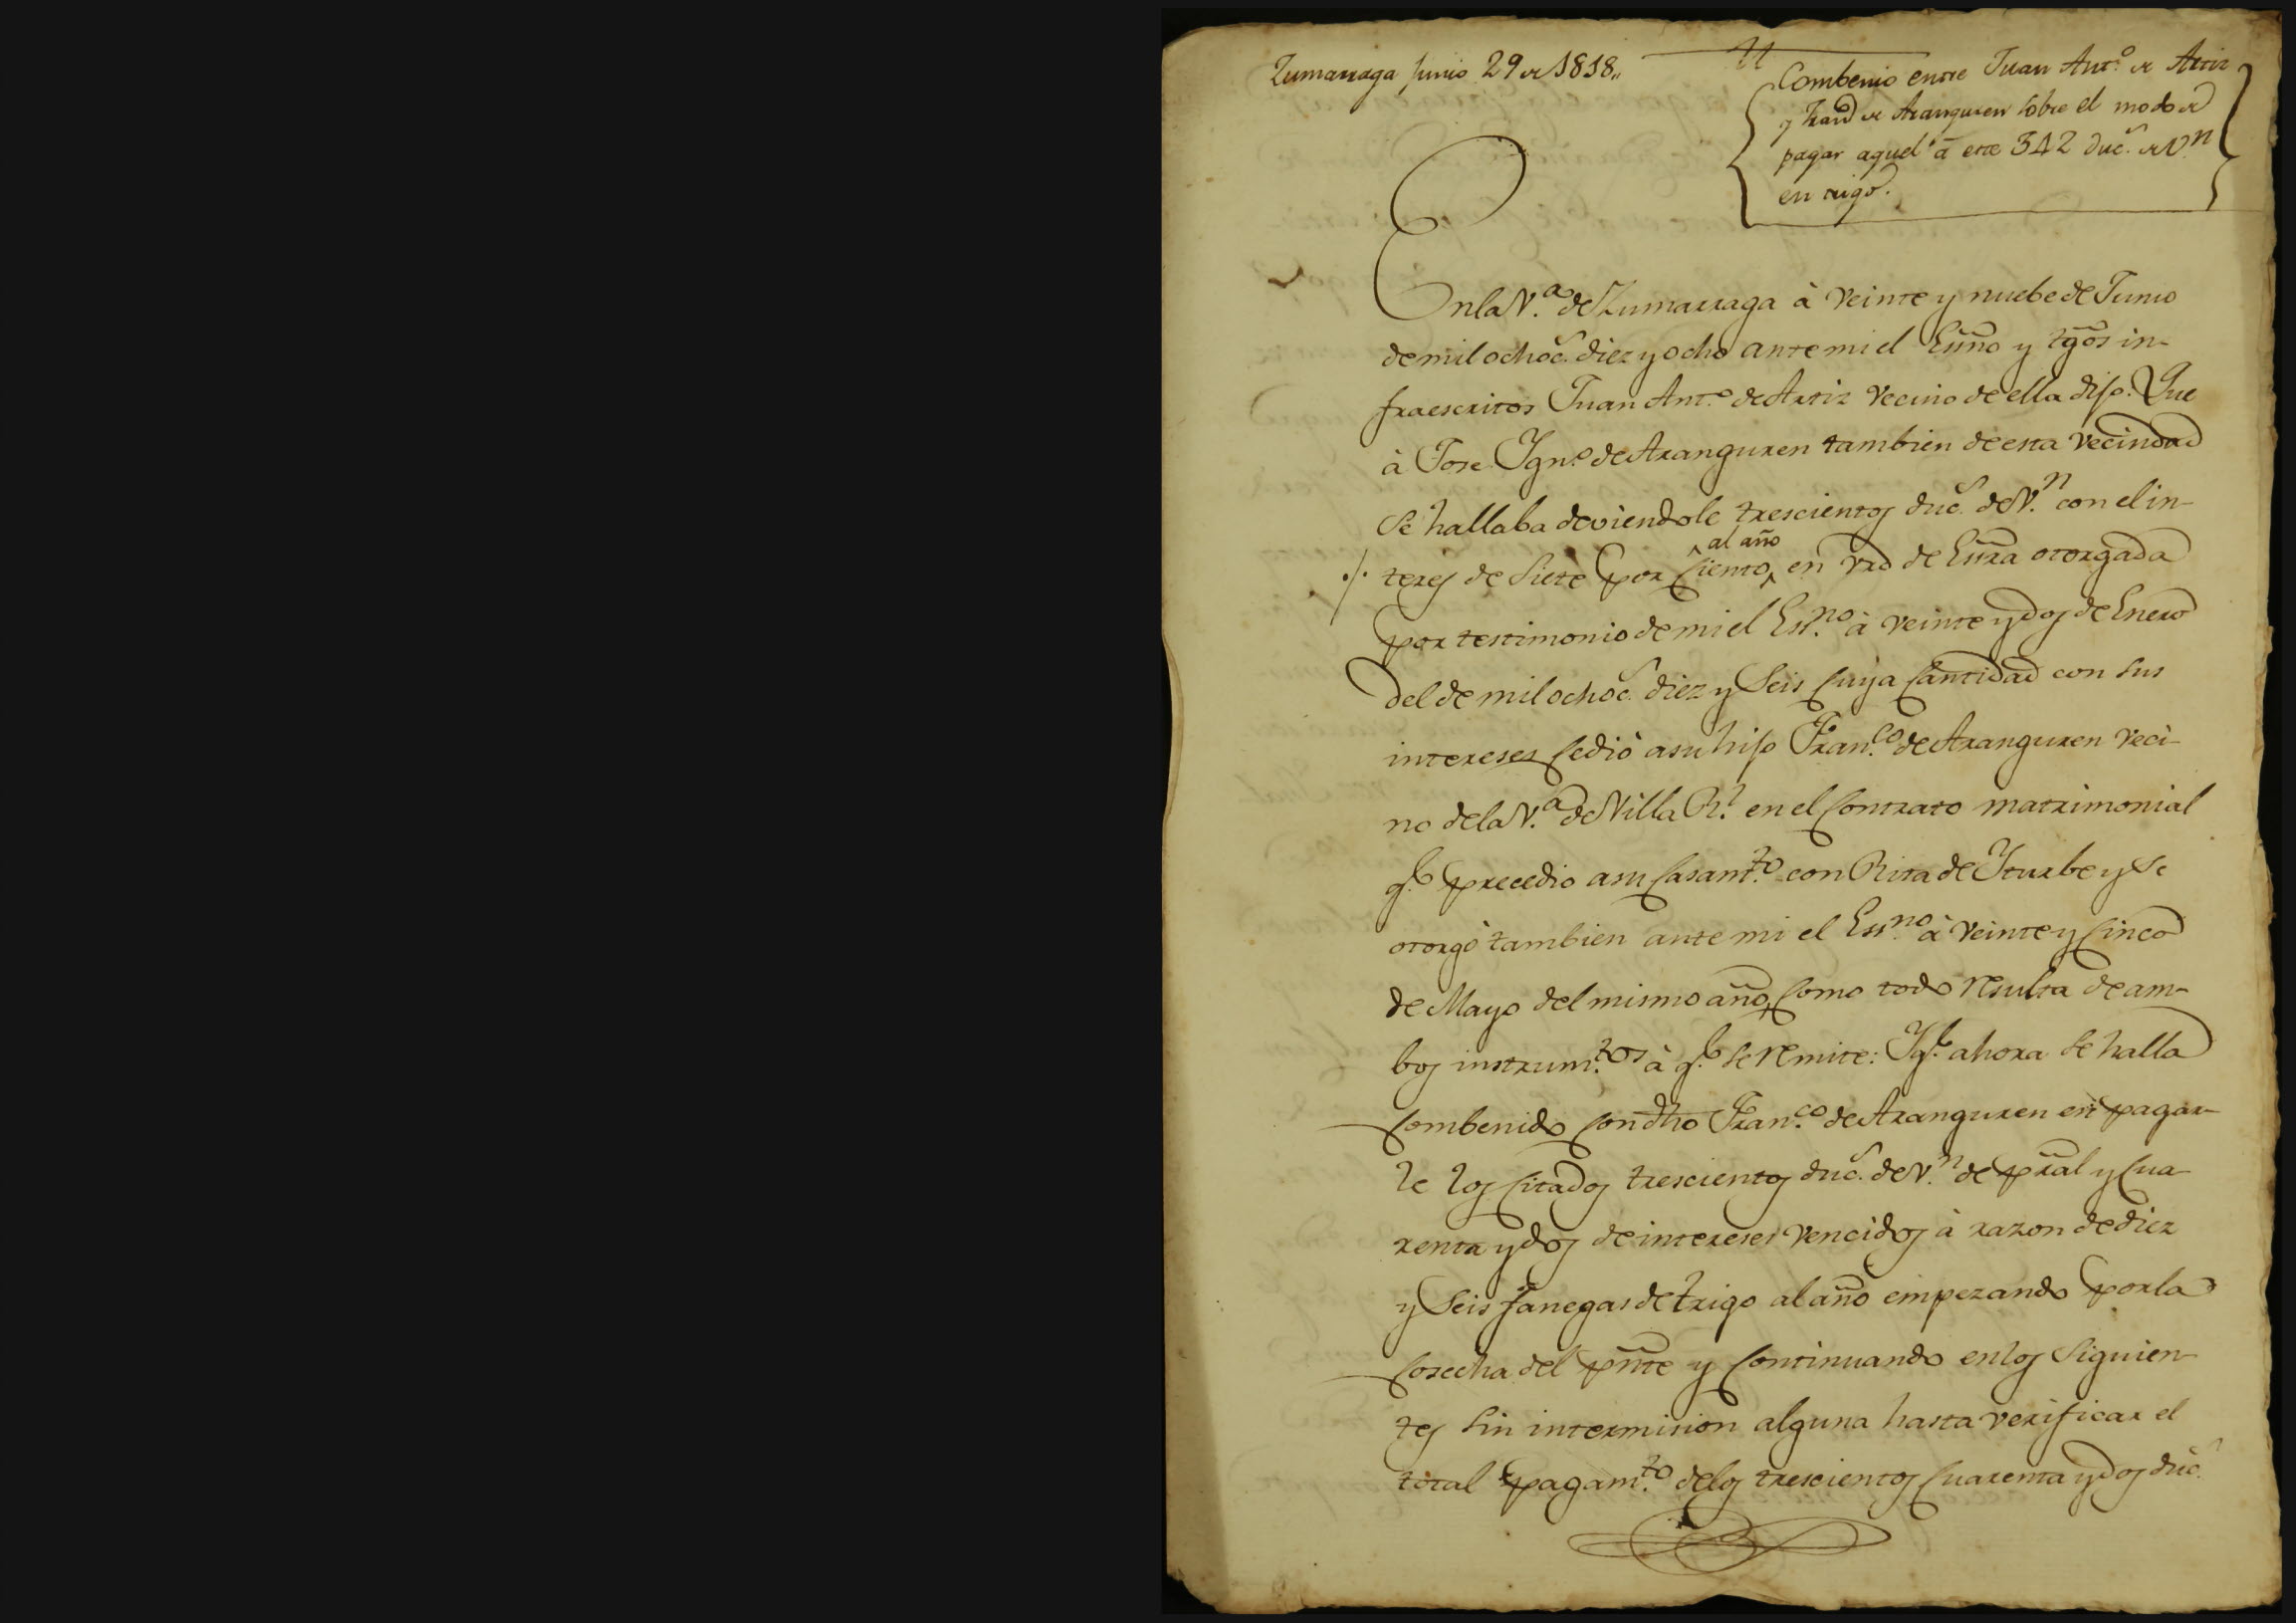 Zumarraga Junio 29 de 1818,,
Combenio entre Juan Ant.º de Artiz
y Fran.co de Aranguren sobre el modo de
pagar aquel á este 342 duc.s de V.n
en trigo.
En la V.a de Zumarraga à veinte y nuebe de Junio
de mil ochoc.s diez y ocho ante mi el Essño y tgõs in-
fraescritos Juan Ant.º de Artiz vecino de ella dijo: Que
à Jose Ygn.º de Aranguren tambien de esta vecindad
se hallaba deviendole trescientos duc.s de V.n con el in-
al año
./. teres de siete por ciento, en vrd de Essrã otorgada
por testimonio de mi el Ess.no à veinte y dos de Enero
del de mil ochoc.s diez y seis cuya cantidad con sus
intereses cedió a su hijo Fran.co de Aranguren veci-
no de la V.a de Villa R.l en el contrato matrimonial
q.e precedio a su casam.to con Rita de Yturbe y se
otorgò tambien ante mi el Ess.no à veinte y cinco
de Mayo del mismo año, como todo resulta de am-
bos instrum.tos à q.e se remite: Y q.e ahora se halla
combenido con dho Fran.co de Aranguren en pagar-
le los citados trescientos duc.s de V.n de pral y cua-
renta y dos de intereses vencidos à razon de diez
y seis fanegas de trigo al año empezando por la
cosecha del pñte y continuando en los siguien-
tes sin intermision alguna hasta verificar el
total pagam.to de los trescientos cuarenta y dos duc.s